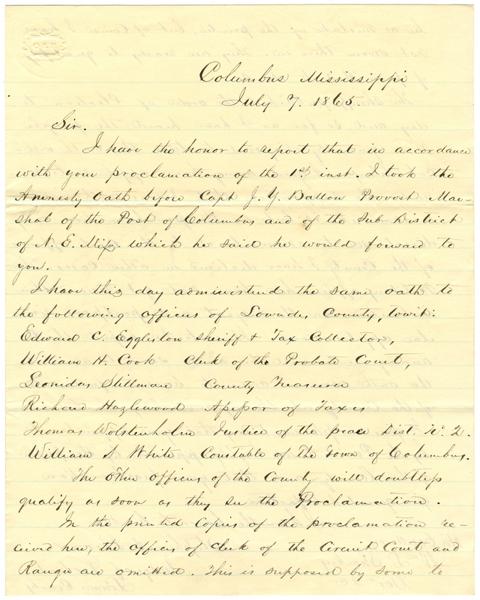 Columbus Mississippi
July 7. 1865.
Sir.
I have the honor to report that in accordance
with your proclamation of the 1st inst. I took the
Amnesty Oath before Capt J. Y. Dalton Provost Mar-
shal of the Post of Columbus and of the Sub District
of N. E. Miss. which he said he would forward to
you.
I have this day administered the same oath to
the following officers of Lowndes County, towit:
Edward C. Eggleston Sheriff & Tax Collector,
William H. Cook Clerk of the Probate Court,
Leonidas Stillman County Treasurer
Richard Hazlewood Assessor of Taxes
Thomas Wolstenholm Justice of the peace Dist. No. 2.
William S. White Constable of the Town of Columbus.
The other officers of the County will doubtless
qualify as soon as they see the Proclamation.
In the printed Copies of the proclamation re-
ceived here, the offices of clerk of the Circuit Court and
Ranger are omitted. This is supposed by some to